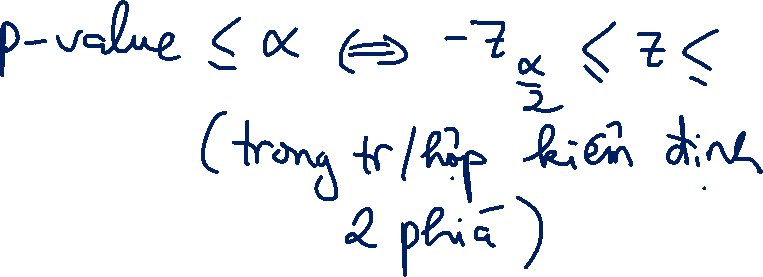 p-value ≤ α ⟺ -z_{α/2} ≤ z ≤
(trong tr/hợp kiểm định
2 phía)